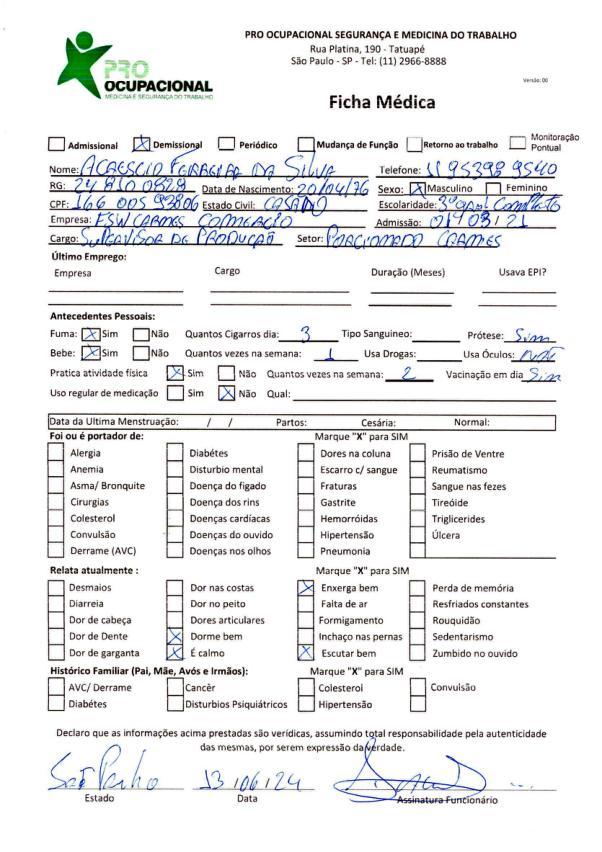 PRO OCUPACIONAL SEGURANÇA E MEDICINA DO TRABALHO
Rua Platina, 190 - Tatuapé
São Paulo - SP - Tel: (11) 2966-8888
PRO
OCUPACIONAL
MEDICINA E SEGURANÇA DO TRABALHO
Versão: 00
Ficha Médica
Admissional X Demissional Periódico Mudança de Função Retorno ao trabalho Monitoração Pontual
Nome: DA SILVA Telefone: 11 95398 9540
RG: 24 810 0828 Data de Nascimento: 20/04/76 Sexo: X Masculino Feminino
CPF: 166 005 93806 Estado Civil: CASADO Escolaridade: 3º Completo
Empresa: FSW CARNES COMERCIO Admissão: 01 03 21
Cargo: SUPERVISOR DE PRODUÇÃO Setor: PORCIONADO CARNES
Último Emprego:
Empresa Cargo Duração (Meses) Usava EPI?
Antecedentes Pessoais:
Fuma: X Sim Não Quantos Cigarros dia: 3 Tipo Sanguineo: Prótese: Sim
Bebe: X Sim Não Quantos vezes na semana: 1 Usa Drogas: Usa Óculos: Não
Pratica atividade física X Sim Não Quantos vezes na semana: 2 Vacinação em dia Sim
Uso regular de medicação Sim X Não Qual:
Data da Ultima Menstruação: / / Partos: Cesária: Normal:
Foi ou é portador de: Marque "X" para SIM
Alergia Diabétes Dores na coluna Prisão de Ventre
Anemia Disturbio mental Escarro c/ sangue Reumatismo
Asma/ Bronquite Doença do figado Fraturas Sangue nas fezes
Cirurgias Doença dos rins Gastrite Tireóide
Colesterol Doenças cardíacas Hemorróidas Triglicerides
Convulsão Doenças do ouvido Hipertensão Úlcera
Derrame (AVC) Doenças nos olhos Pneumonia
Relata atualmente : Marque "X" para SIM
Desmaios Dor nas costas X Enxerga bem Perda de memória
Diarreia Dor no peito Falta de ar Resfriados constantes
Dor de cabeça Dores articulares Formigamento Rouquidão
Dor de Dente X Dorme bem Inchaço nas pernas Sedentarismo
Dor de garganta X É calmo X Escutar bem Zumbido no ouvido
Histórico Familiar (Pai, Mãe, Avós e Irmãos): Marque "X" para SIM
AVC/ Derrame Cancêr Colesterol Convulsão
Diabétes Disturbios Psiquiátricos Hipertensão
Declaro que as informações acima prestadas são verídicas, assumindo total responsabilidade pela autenticidade
das mesmas, por serem expressão da verdade.
São Paulo 13/06/24
Estado Data Assinatura Funcionário